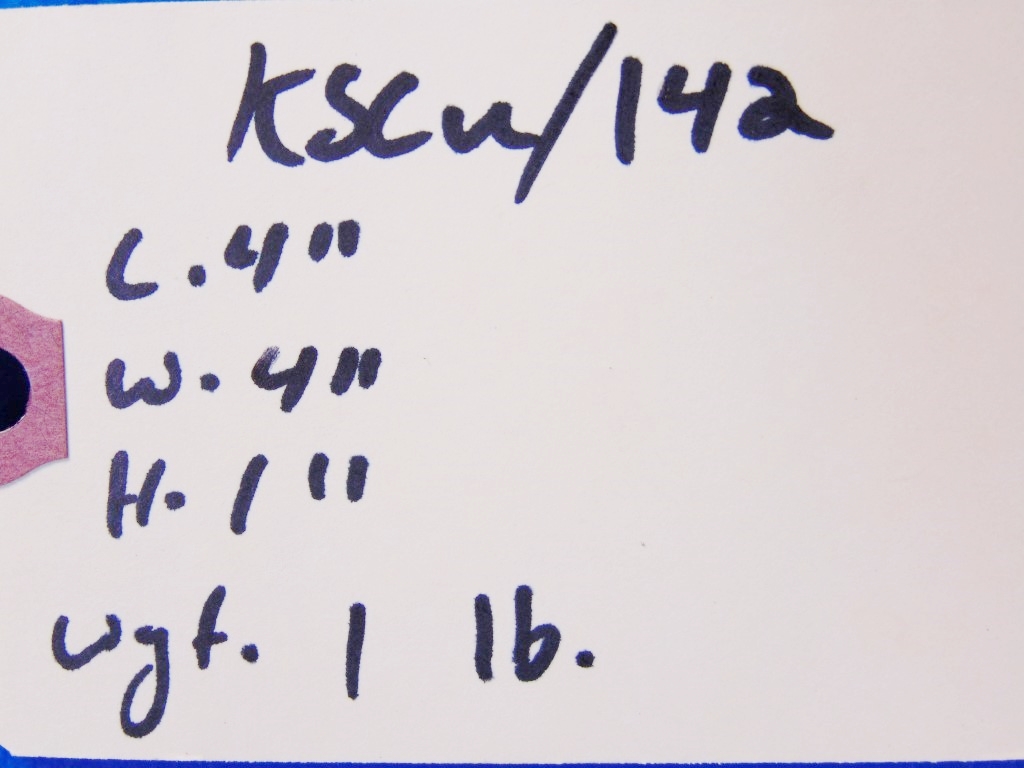 KSCu/142
L. 4"
W. 4"
H. 1"
wgt. 1 lb.